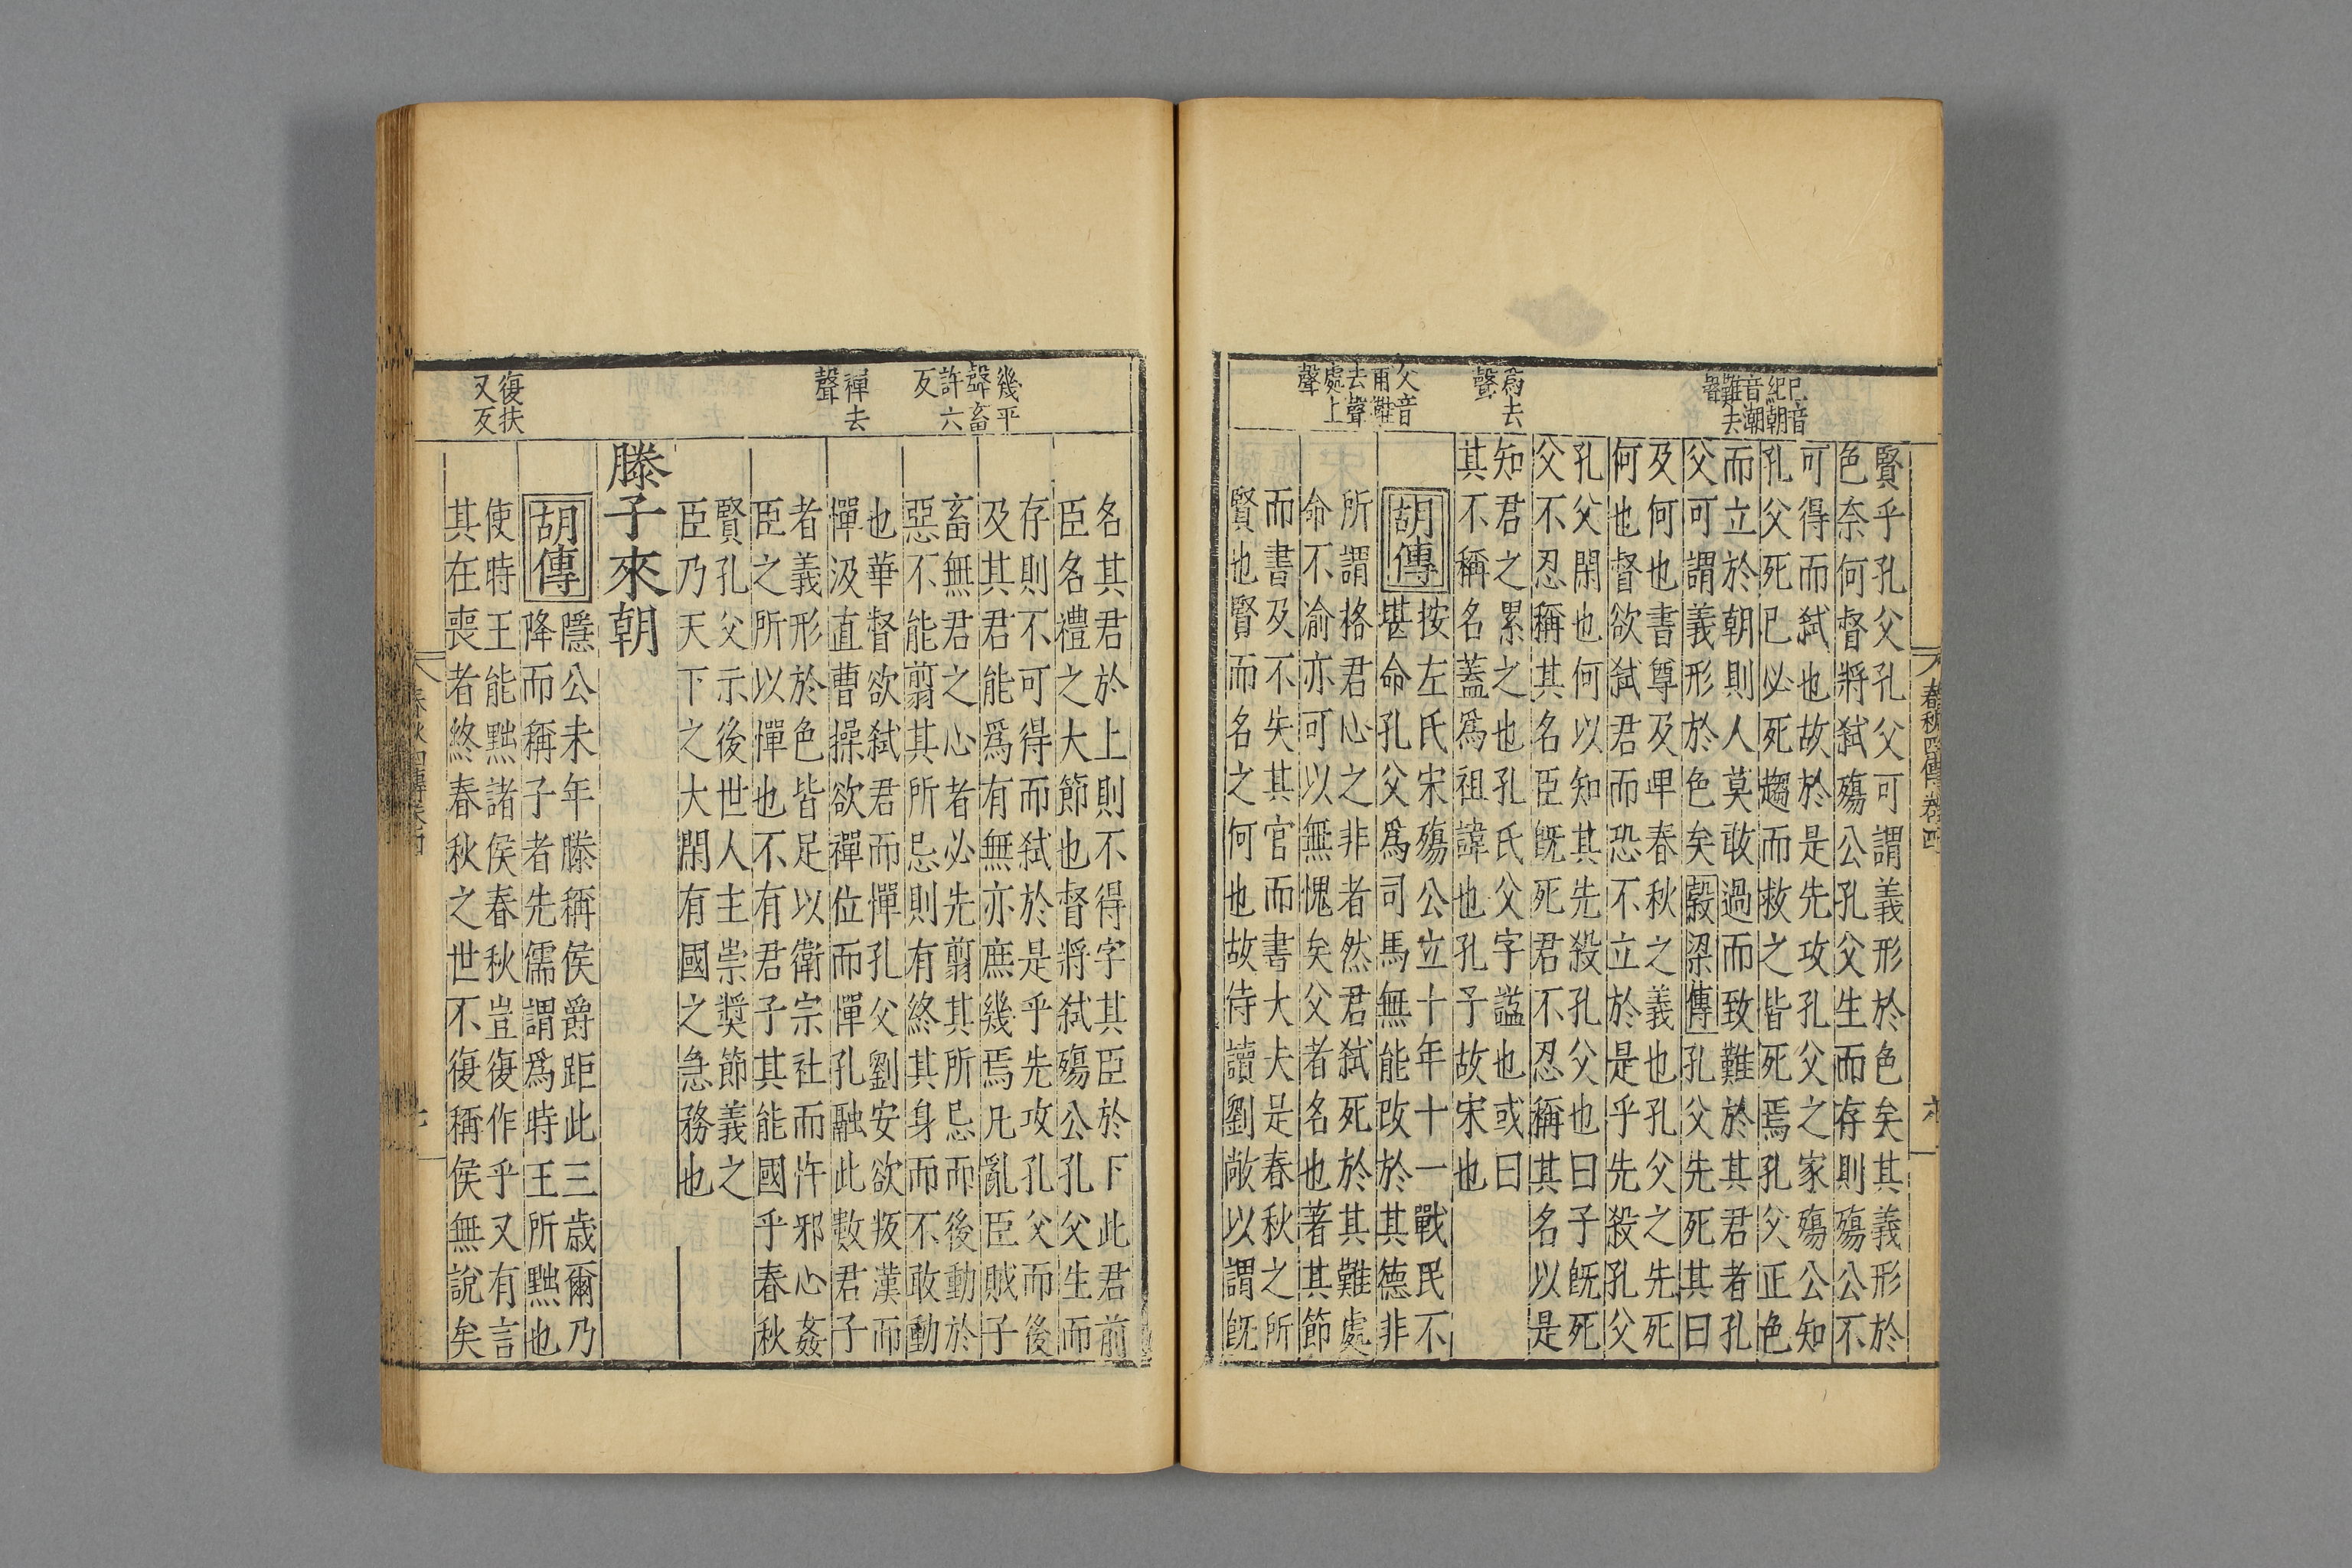 巳音
紀朝
音潮
難去
聲
爲去
聲
父音
甫難
去聲
處上
聲
春秋四傳卷四
六
賢乎孔父孔父可謂義形於色矣其義形於
色奈何督將弑殤公孔父生而存則殤公不
可得而弑也故於是先攻孔父之家殤公知
孔父死已必死趨而救之皆死焉孔父正色
而立於朝則人莫敢過而致難於其君者孔
父可謂義形於色矣穀梁傳孔父先死其曰
及何也書尊及卑春秋之義也孔父之先死
何也督欲弑君而恐不立於是乎先殺孔父
孔父閑也何以知其先殺孔父也曰子旣死
父不忍稱其名臣旣死君不忍稱其名以是
知君之累之也孔氏父字謚也或曰
其不稱名蓋爲祖諱也孔子故宋也
胡傳
按左氏宋殤公立十年十一戰民不
堪命孔父爲司馬無能改於其德非
所謂格君心之非者然君弑死於其難處
命不渝亦可以無愧矣父者名也著其節
而書及不失其官而書大夫是春秋之所
賢也賢而名之何也故侍讀劉敞以謂旣
幾平
聲畜
許六
反
禪去
聲
復扶
又反
名其君於上則不得字其臣於下此君前
臣名禮之大節也督將弑殤公孔父生而
存則不可得而弑於是乎先攻孔父而後
及其君能爲有無亦庶幾焉凡亂臣賊子
畜無君之心者必先翦其所忌而後動於
惡不能翦其所忌則有終其身而不敢動
也華督欲弑君而憚孔父劉安欲叛漢而
憚汲直曹操欲禪位而憚孔融此數君子
者義形於色皆足以衛宗社而忤邪心姦
臣之所以憚也不有君子其能國乎春秋
賢孔父示後世人主崇奬節義之
臣乃天下之大閑有國之急務也
滕子來朝
胡傳
隱公未年滕稱侯爵距此三歲爾乃
降而稱子者先儒謂爲時王所黜也
使時王能黜諸侯春秋豈復作乎又有言
其在喪者終春秋之世不復稱侯無說矣